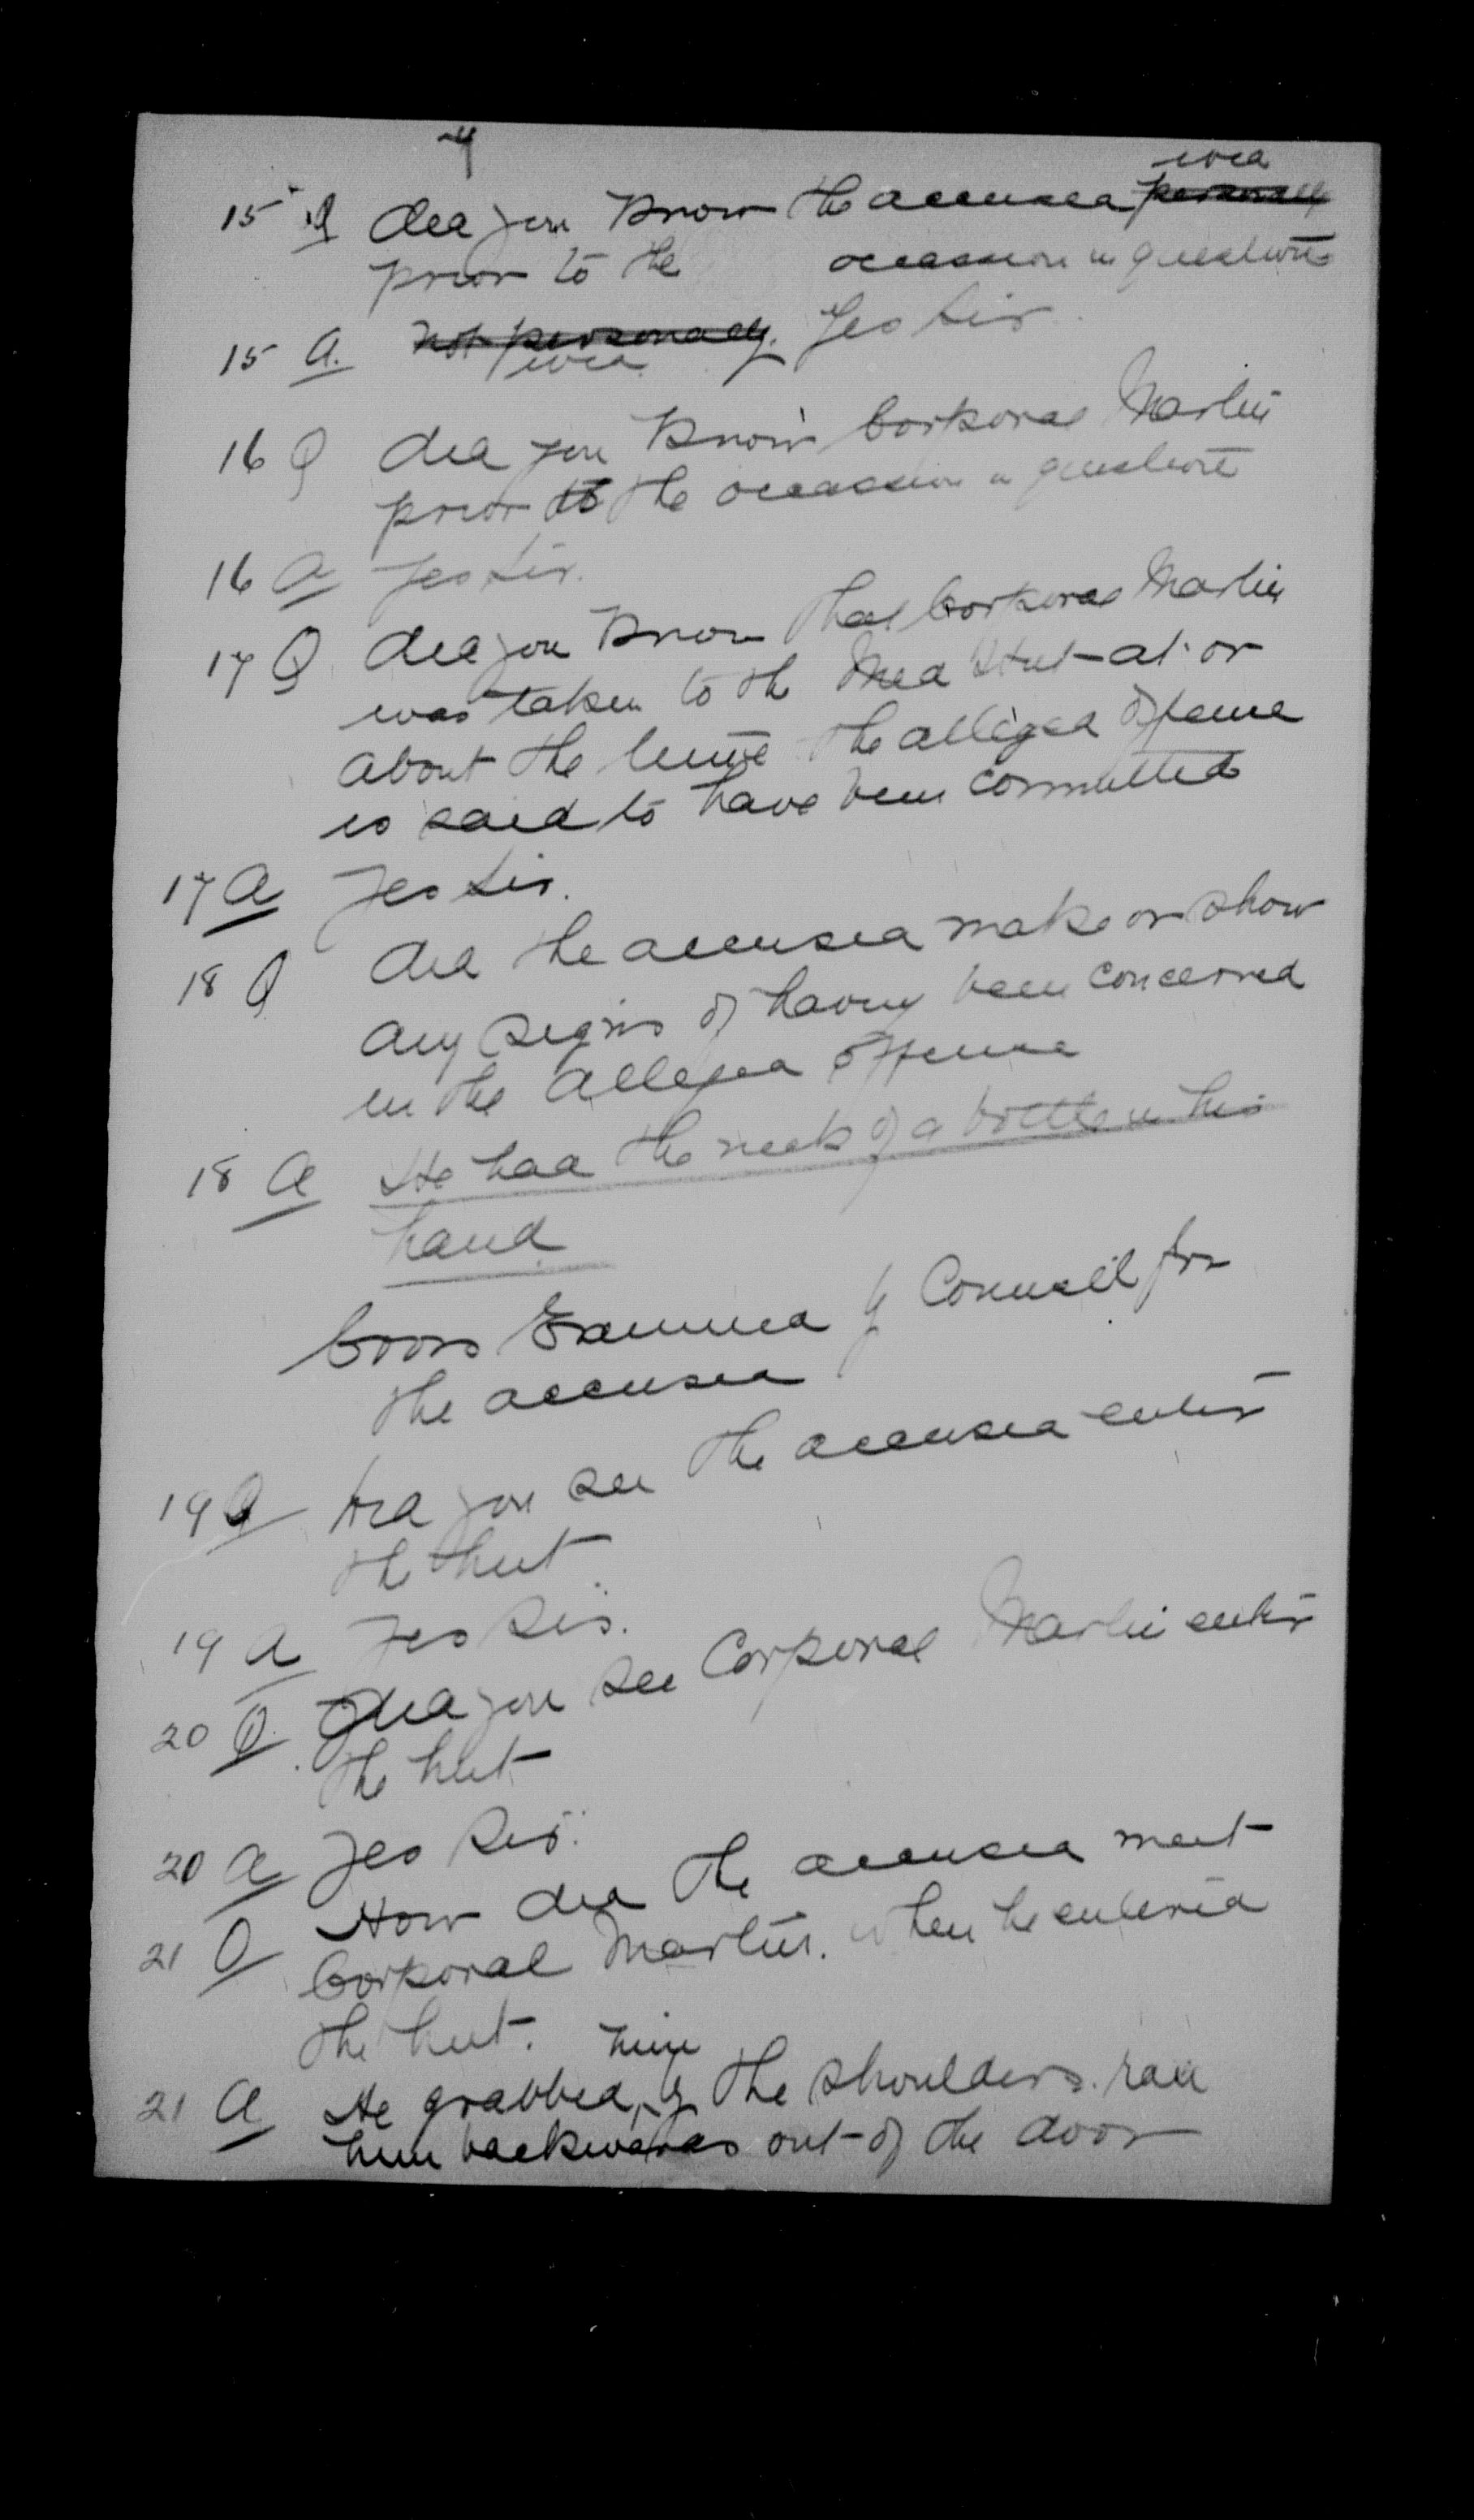 4
15 Q Did you know the accused ~~personally~~
prior to the occassion in question
15 A. ~~Not personally.~~ Yes Sir.
16 Q Did you know Corporal Martin
prior to the occassion in question
16 A Yes Sir.
17 Q Did you know that Corporal Martin
was taken to the Med Hut at or
about the time the alleged offence
is said to have been committed
17 A Yes Sir.
18 Q Did the accused make or show
any signs of having been concerned
in the alleged offence
18 A He had the neck of a bottle in his
hand
Cross Examined by Counsel for
the accused
19 Q Did you see the accused enter
the hut
19 A Yes Sir.
20 Q. Did you see Corporal Martin enter
the hut
20 A Yes Sir.
21 Q How did the accused meet
Corporal Martin. when he entered
the hut.
21 A He grabbed him by the shoulders. ran
him backwards out of the door